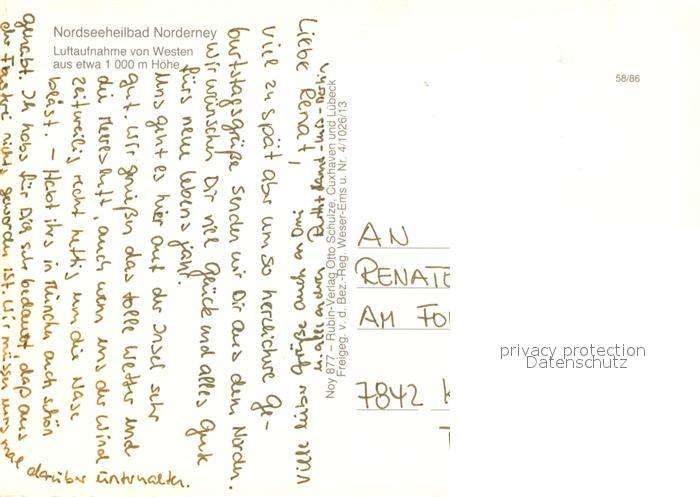 Nordseeheilbad Norderney
Luftaufnahme von Westen
aus etwa 1 000 m Höhe
58/86
Liebe Renate!
Viel zu spät aber um so herzlichere Ge-
burtstagsgrüße senden wir Dir aus dem Norden.
Wir wünschen Dir viel Glück und alles Gute
fürs neue Lebensjahr.
Uns geht es hier auf der Insel sehr
gut. Wir genießen das tolle Wetter und
die Meeresluft, auch wenn uns der Wind
zeitweilig recht heftig um die Nase
bläst. – Habt ihrs in München auch schön
gehabt. Ich habs für Dich sehr bedauert, daß aus
der nichts geworden ist. Wir müssen uns mal
darüber unterhalten.
Viele liebe Grüße auch an Omi
u. alle anderen
Noy 877 – Rubin-Verlag Otto Schulze, Cuxhaven und Lübeck
Freigeg. v. d. Bez.-Reg. Weser-Ems u. Nr. 4/1026/13
AN
RENATE
AM FO
7842 K
privacy protection
Datenschutz